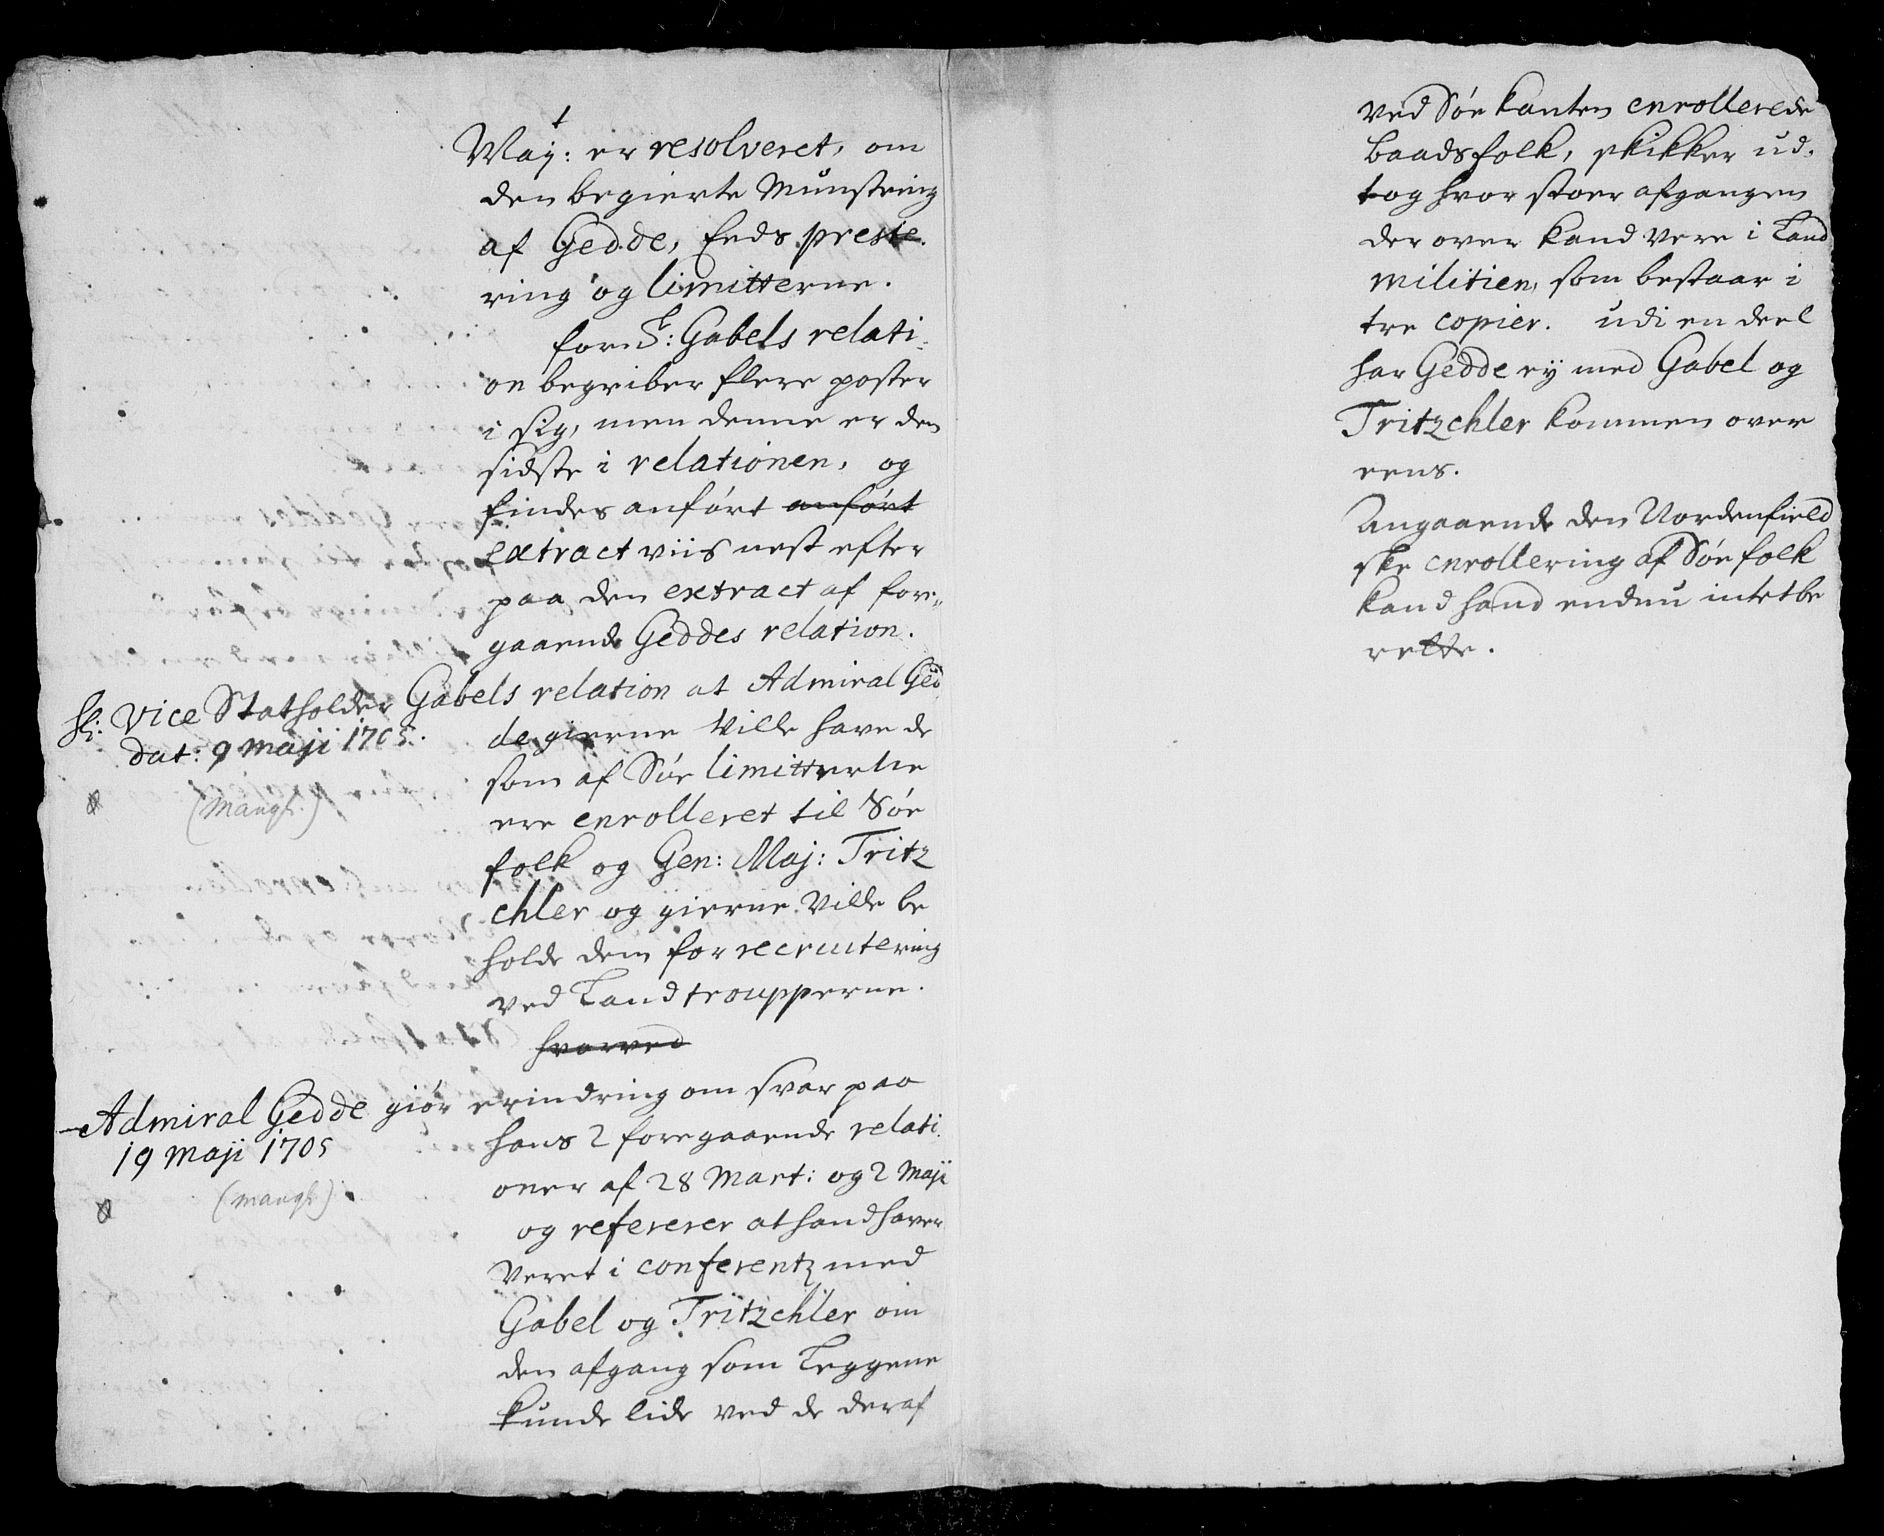 May: er resolveret, om
den begierte Munstring
af Gedde, Eeds preste-
ring og limitterne.
forn Gabels relati-
on begriber flere poster
i sig, men denne er den
sidste i relationen, og
findes anført anført
extract viis nest efter
paa den extract af for-
gaaende Geddes relation.
H: Vice Statholder Gabels relation at Admiral Ged
dat: 9 maji 1705.
de gierne Ville have de
(Mangl.)
som af Søe limitterne
ere enrolleret til Søe
folk og Gen: Maj: Tritz
chler og gierne Ville be
holde dem for recruitering
ved Land troupperne.
hvorved
Admiral Gedde giør erindring om svar paa
19 Maji 1705
hans 2 foregaaende relati-
(mangl)
oner af 28 Mart: og 2 Maji
og refererer at hand haver
Veret i conferentz med
Gabel og Tritzchler om
den afgang som Leggene
kunde lide ved de deraf
ved Søe kanten enrollerede
baadsfolk, skikker ud-
tog hvor stoer afgangen
der over kand vere i Land
militien, som bestaar i
tre copier. udi en deel
har Gedde ey med Gabel og
Tritzchler kommen over
eens.
Angaaende den Nordenfield
ske enrollering af Søe folk
kand hand endnu intet be
rette.